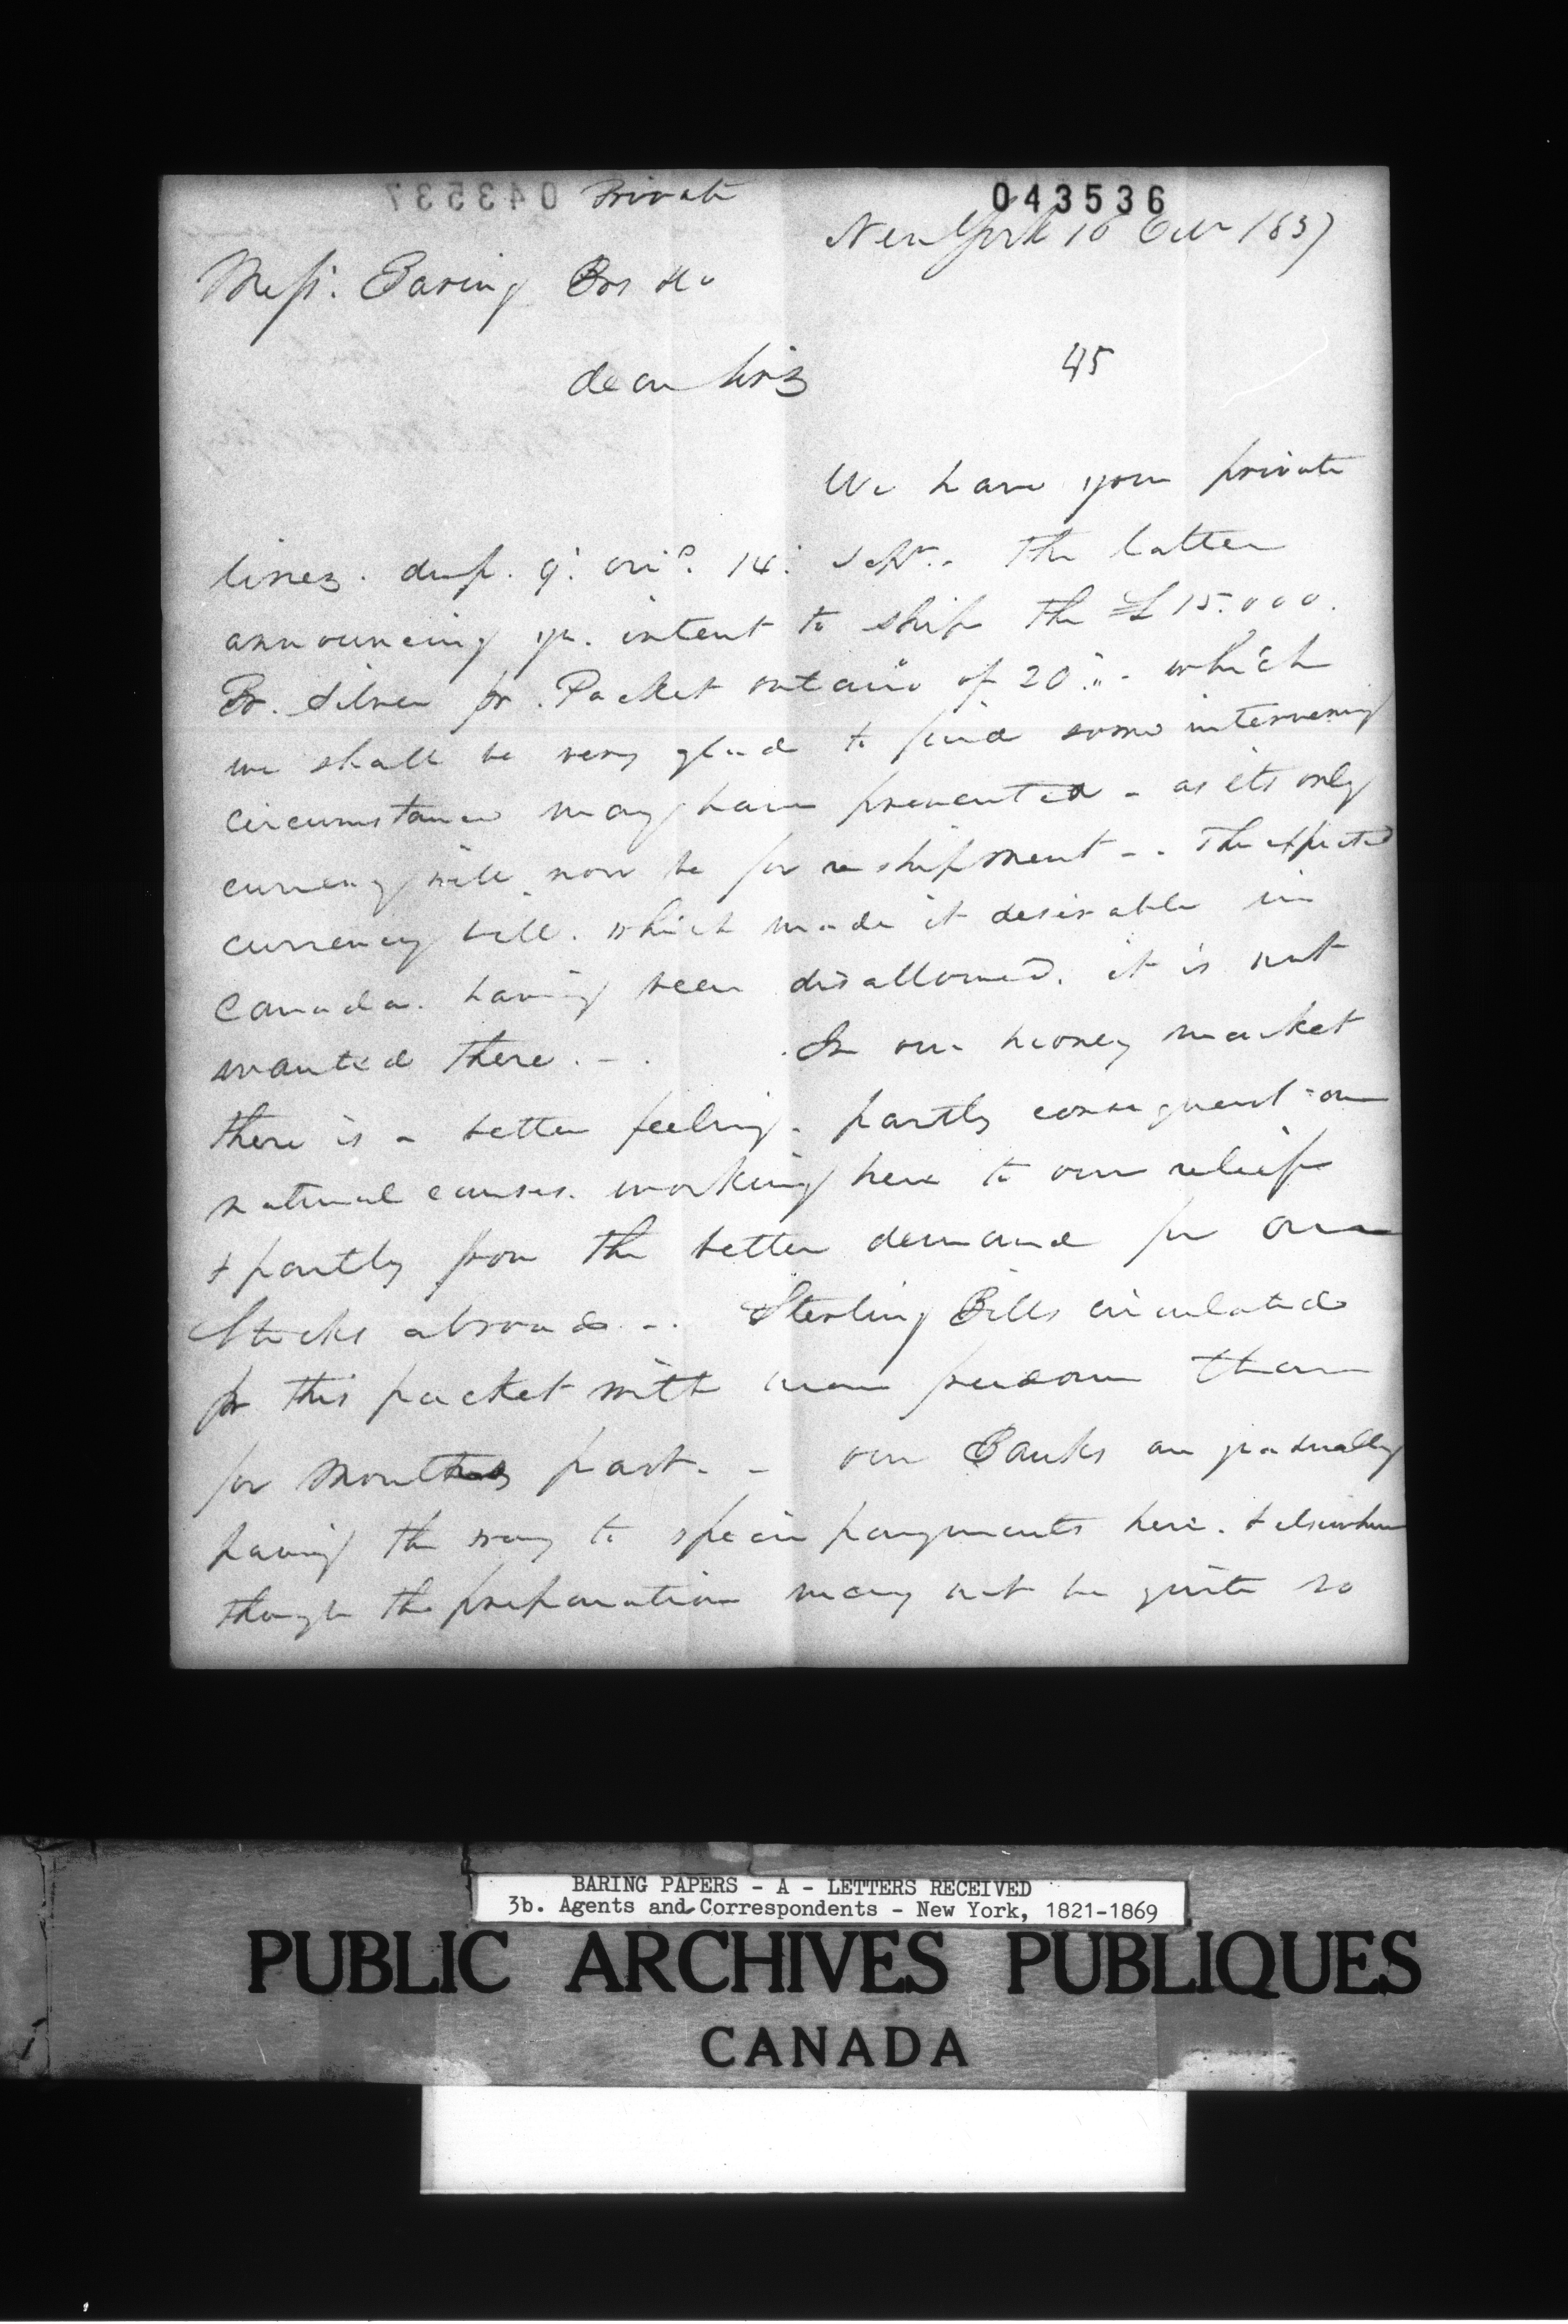 Private
043536
New York 16 Octr 1837
Messrs. Baring Bros &Co
dear Sirs
45
We have your private
lines. dup. 9. ori?. 14. Sept.. The latter
announcing yr. intent to ship the £15.000.
Br. Silver pr. Packet ontario of 20".- which
we shall be very glad to find some intervening
circumstance may have prevented - as its only
currency will now be for reshipment -. The expected
currency bill. which made it desirable in
Canada. having been disallowed. it is not
wanted there. -. In our money market
there is a better feeling. partly consequent on
natural causes. working here to our relief
& partly from the better demand for our
Stocks abroad -. Sterling Bills circulated
pr this packet with more freedom than
for months past. - our Banks are gradually
paving the way to specie payments here. & elsewhere
though the preparation may not be quite so
BARING PAPERS - A - LETTERS RECEIVED
3b. Agents and Correspondents - New York, 1821-1869
PUBLIC ARCHIVES PUBLIQUES
CANADA